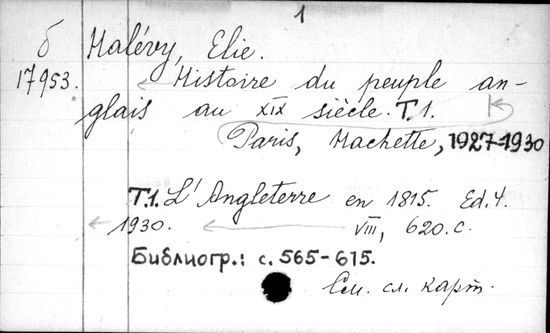 1
б Halévy, Elie.
17953. Histoire du peuple an-
glais au XIX siècle. T.1.
Paris, Hachette, 1927-1930
T.1. L'Angleterre en 1815. Ed. 4.
1930. VIII, 620.c.
Библиогр.: с. 565-615.
См. сл. карт.